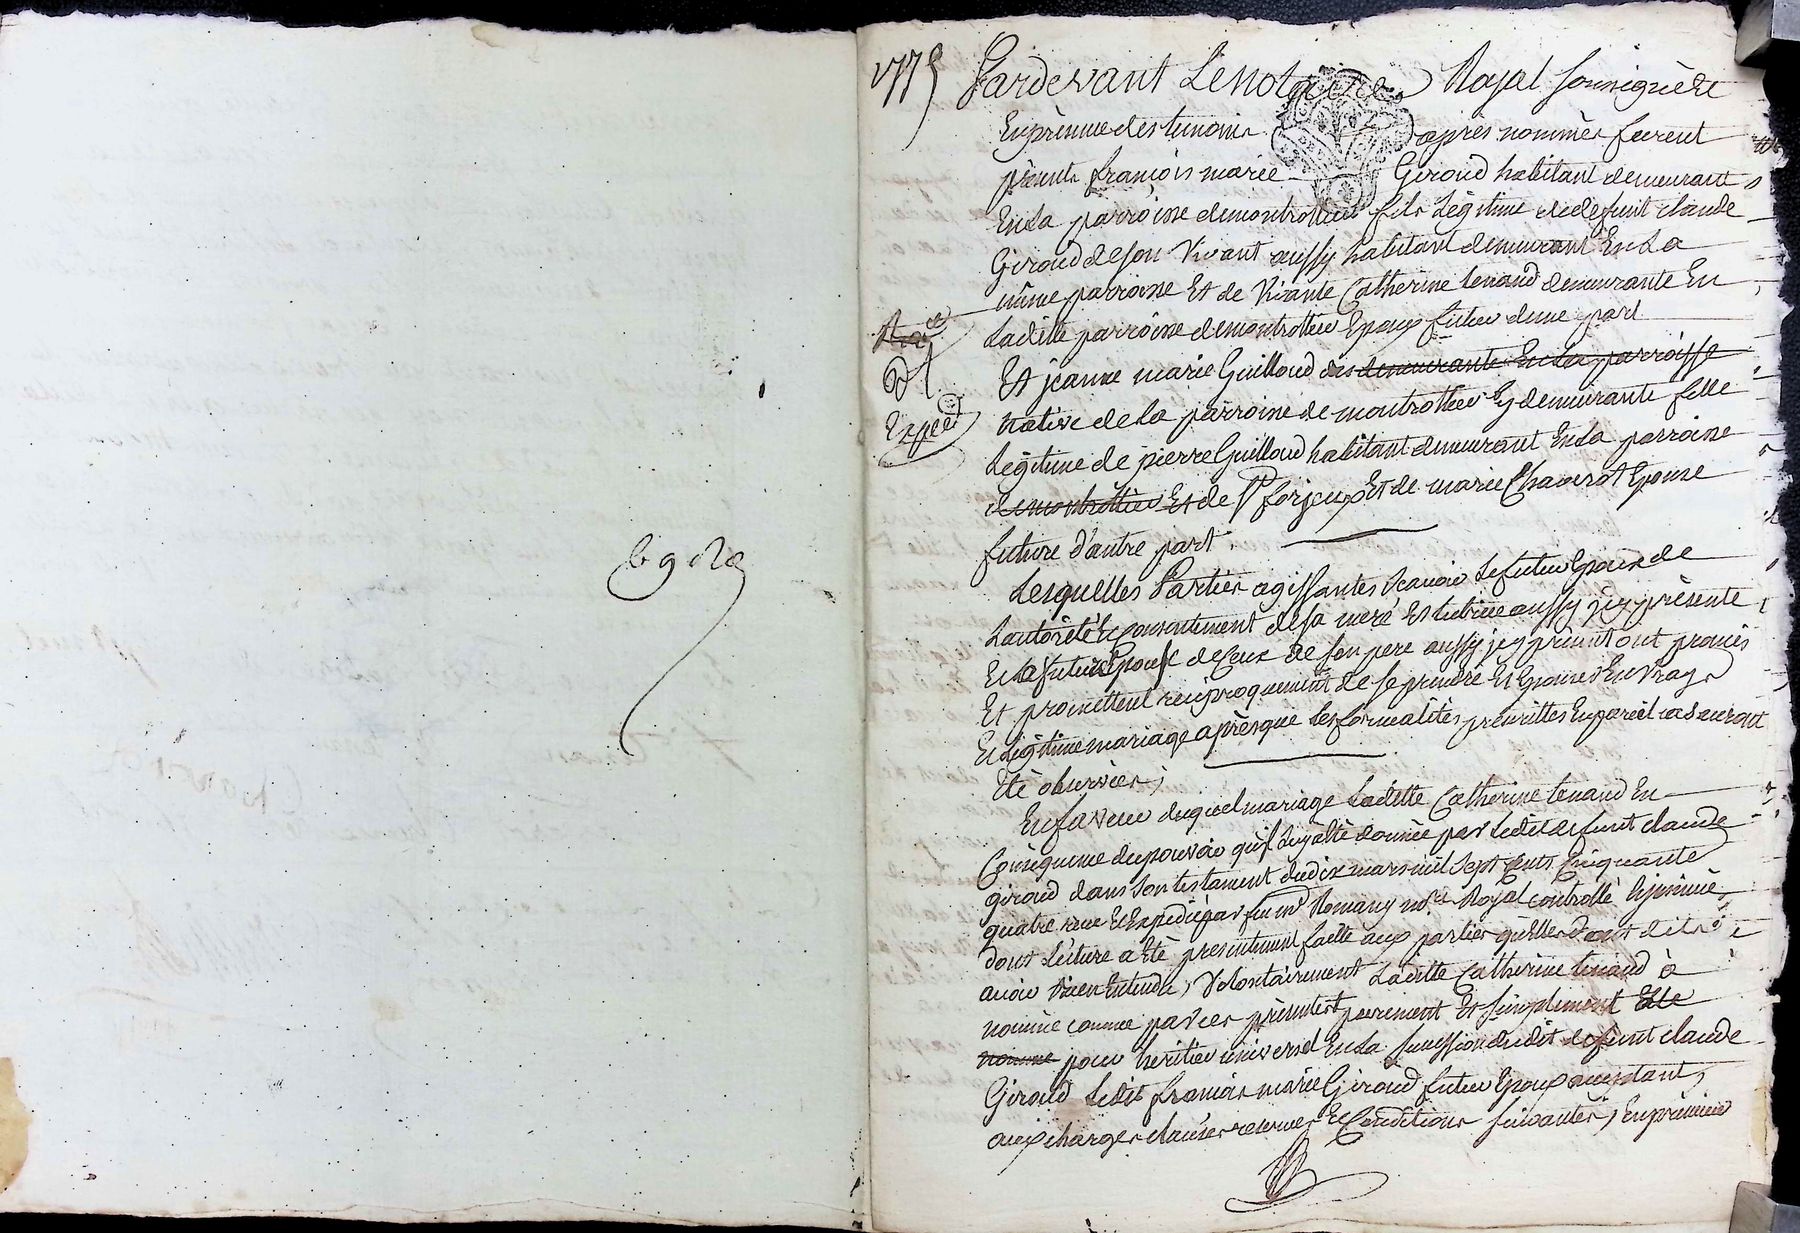 1775
Pardevant Le Notaire Royal soussigné Et
En présence des temoins après nommés furent
présents françois marie Giroud habitant demeurant
En La parroisse de montrottier fils Légitime de defunt claude
Giroud de son Vivant aussy habitant demeurant En La
même parroisse Et de Vivante Catherine tenaud demeurante En
Ladite parroisse de montrottier Epoux futur d'une part
Et jeanne marie Guilloud demeurante En La parroisse
native de La parroisse de montrottier Ey demeurante fille
Légitime de pierre Guilloud habitant demeurant En La parroisse
de montrottier Et de St forjeux Et de marie Chaverot Epouse
future d'autre part.
Lesquelles Parties agissantes scavoir Le futur Epoux de
L'autorité Et consentement de sa mere Et tutrice aussy icy présente
Et La future Epouse de Ceux de son pere aussy icy présent ont promis
Et promettent reciproquement de se prendre Et Epouser En Vray
Et Légitime mariage après que Les formalites prescrittes En pareil cas auront
Eté observées,
En faveur duquel mariage Laditte Catherine tenaud En
Conséquence du pouvoir qu'il Luy a Eté donnée par Ledit defunt claude
giroud dans son testament du dix mars mil sept cents Cinquante
quatre reçu Et Expedié par feu me Romany nre Royal controllé
dont Lecture a Eté presentement faitte aux parties qu'elles ont dit
avoir bien Entendu, Volontairement Laditte Catherine tenaud à
nommé comme par ces présentes purement Et simplement Elle
nomme pour heritier universel En La succession dudit defunt claude
Giroud Ledit françois marie Giroud futur Epoux acceptant,
aux charges clauses reserves Et Conditions suivantes, En premier